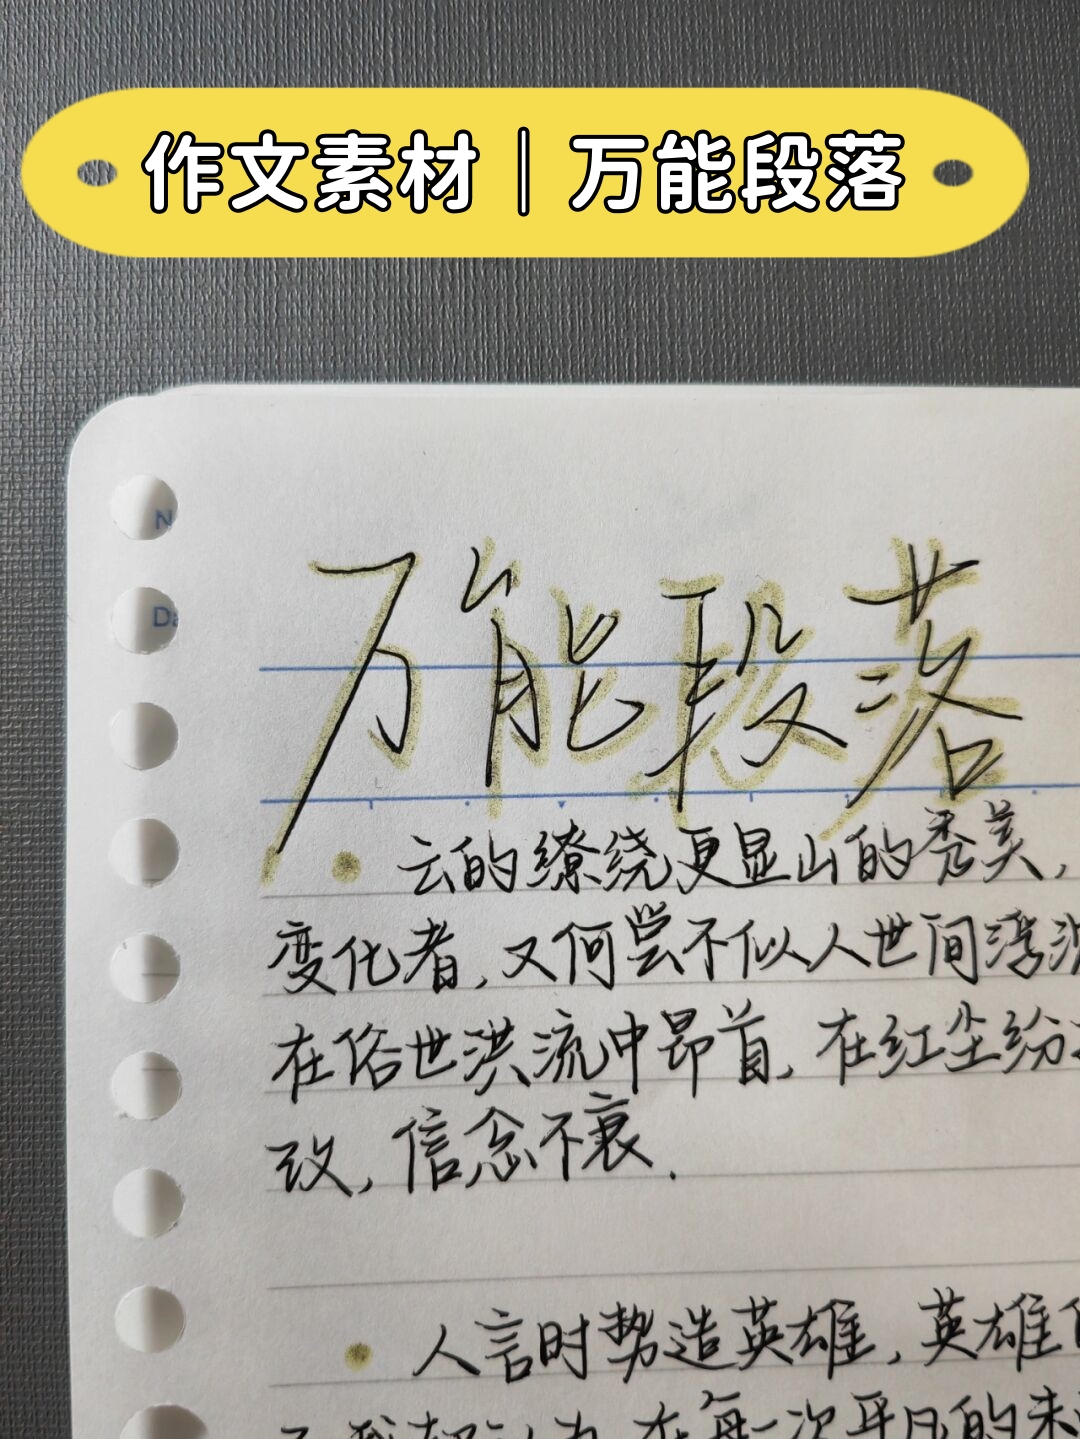 作文素材｜万能段落
N
Da
万能段落
云的缭绕更显山的秀美，
变化者，又何尝不似人世间浮
在俗世洪流中昂首，在红尘纷
改，信念不衰．
人言时势造英雄，英雄
在每一次平凡的未